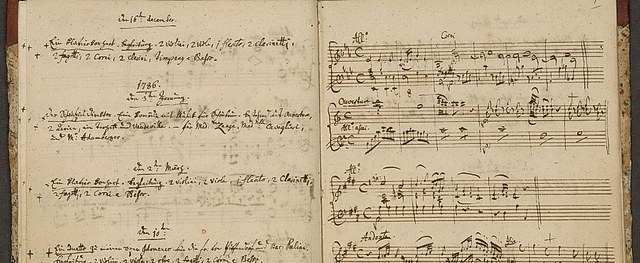 Den 16:t december.
Ein Klavier Konzert. Begleitung. 2 violini, 2 viole, 1 flauto, 2 clarinetti,
2 fagotti, 2 Corni, 2 clarini, Timpany e Bassi.
1786.
Den 3:t
Der Schauspiel Director. Eine Komödie mit Musick für
2 Arien, ein Terzett und Vaudeville. — für Mad.me Lange, Mad.selle Cavaglieri,
und M.r Adamberger.
Den 2:t März.
Ein Klavier Konzert. Begleitung. 2 violini, 2 viole, 1 flauto, 2 Clarinetti,
2 fagotti, 2 Corni e Bassi.
Den 10:t
Ein Duetto zu meiner opera Idomeneo für die
Begleitung. 2 violini, 2 viole, 2 oboe, 2 fagotti, 2 Corni e Bassi.
1
All:o Corni
Ouverture
All:o assai.
All:o
Andante